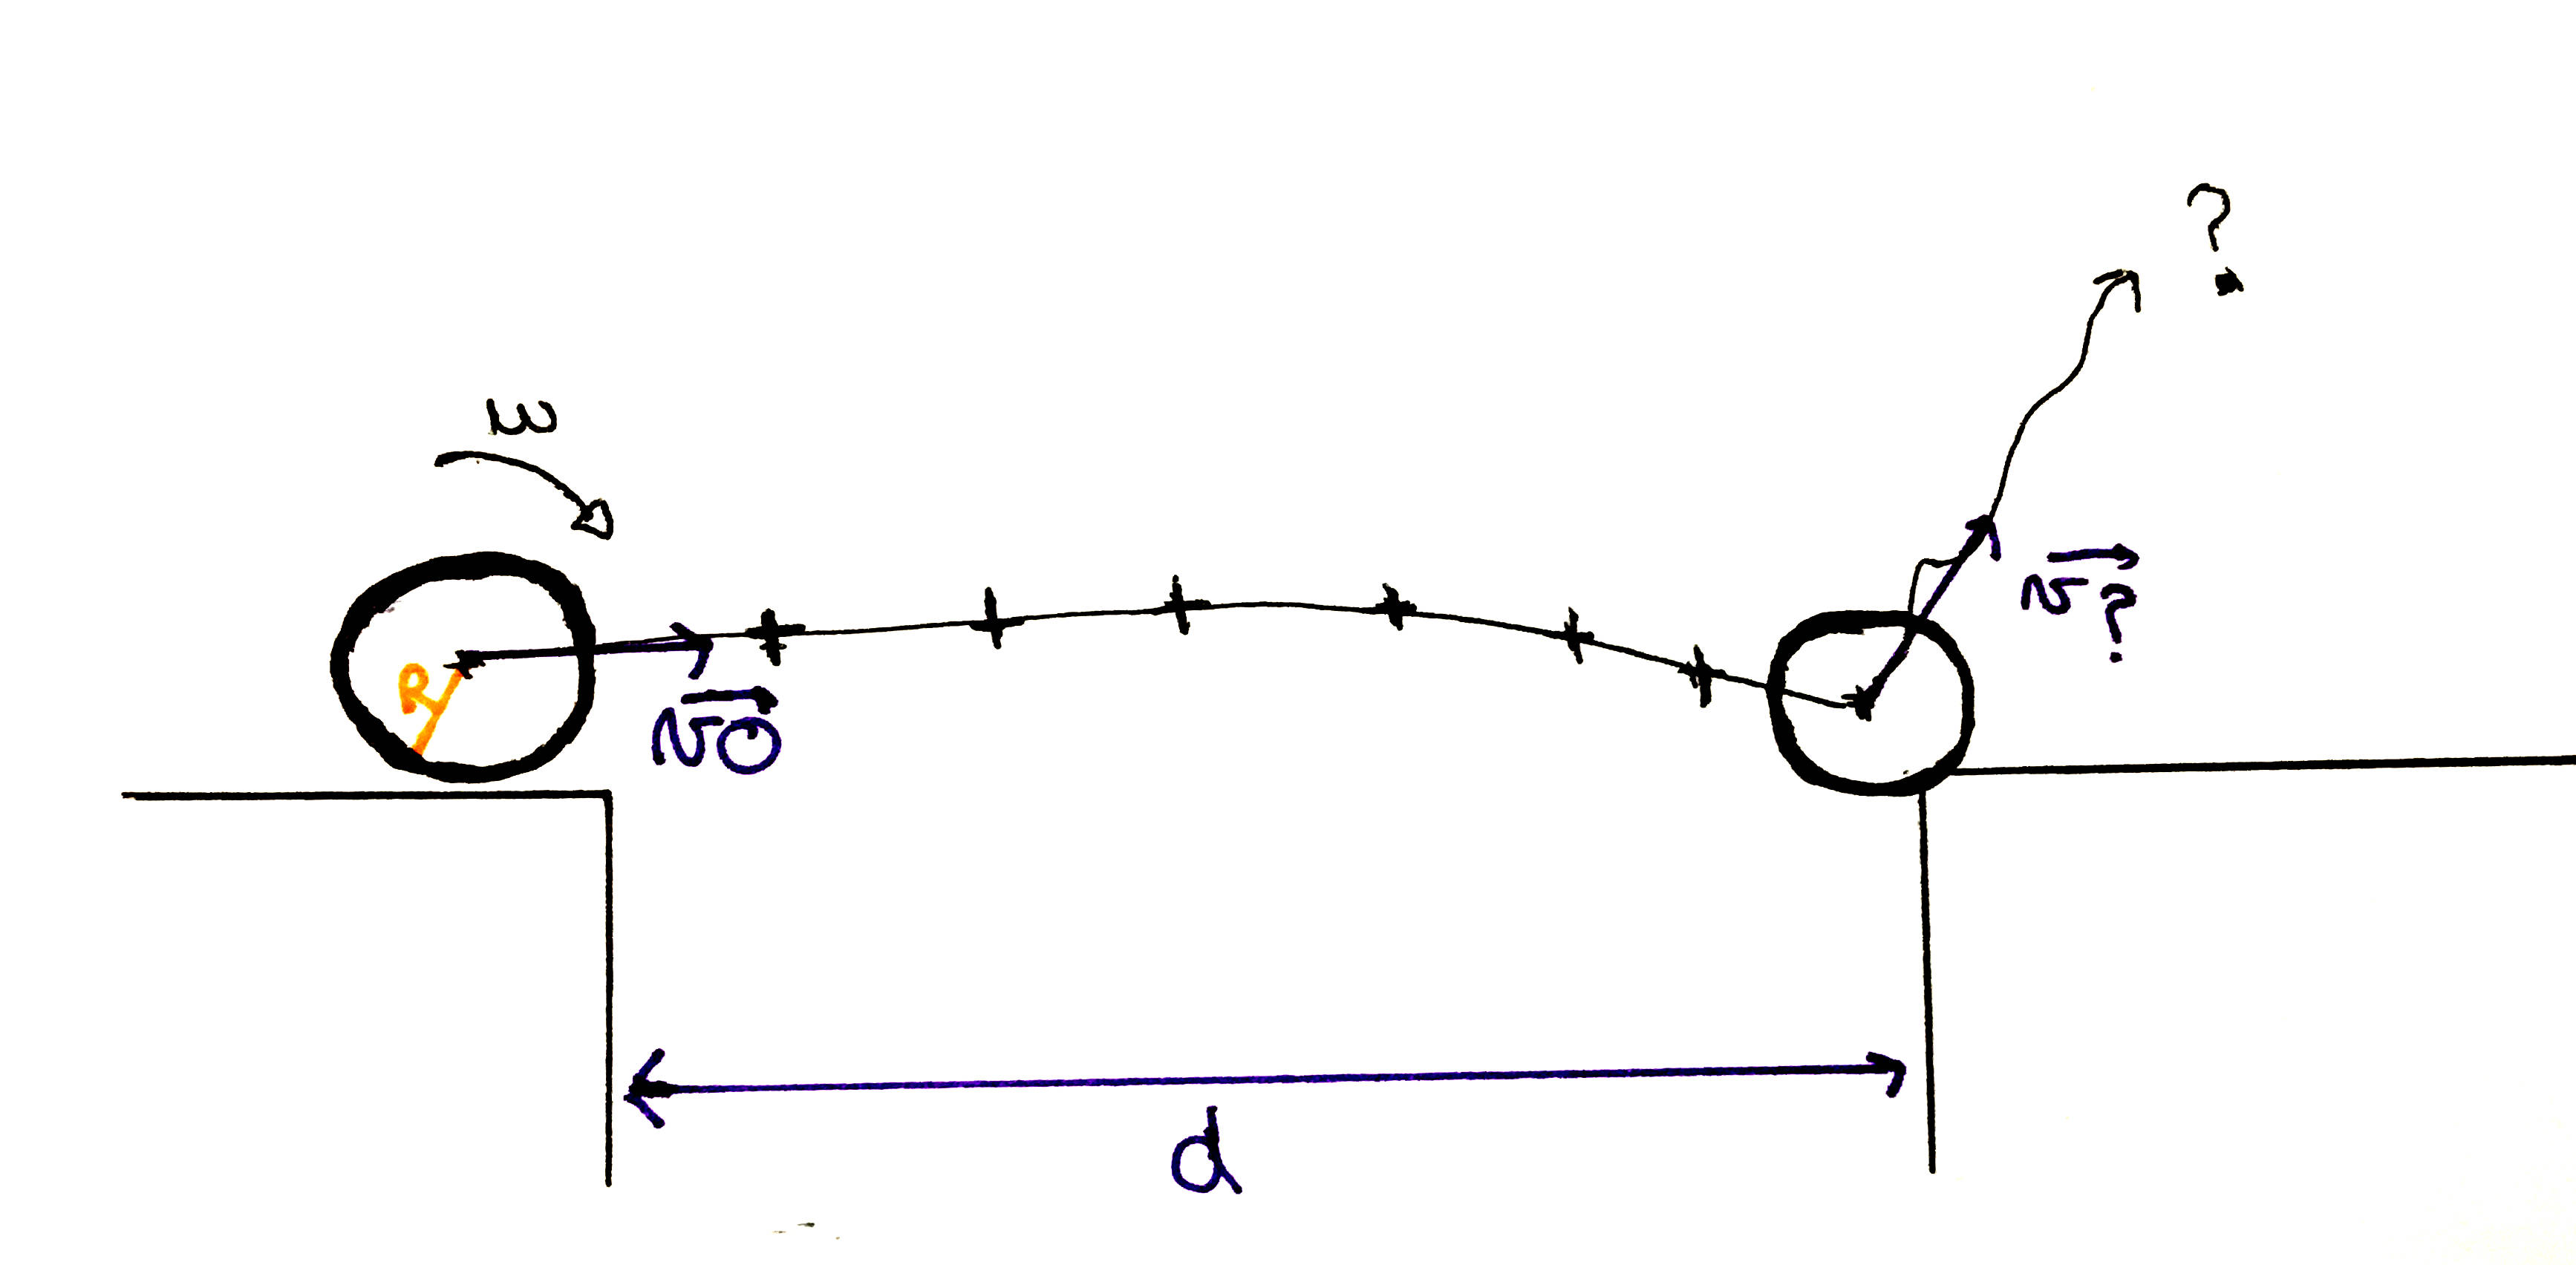 ?
ω
R
v0
v?
d